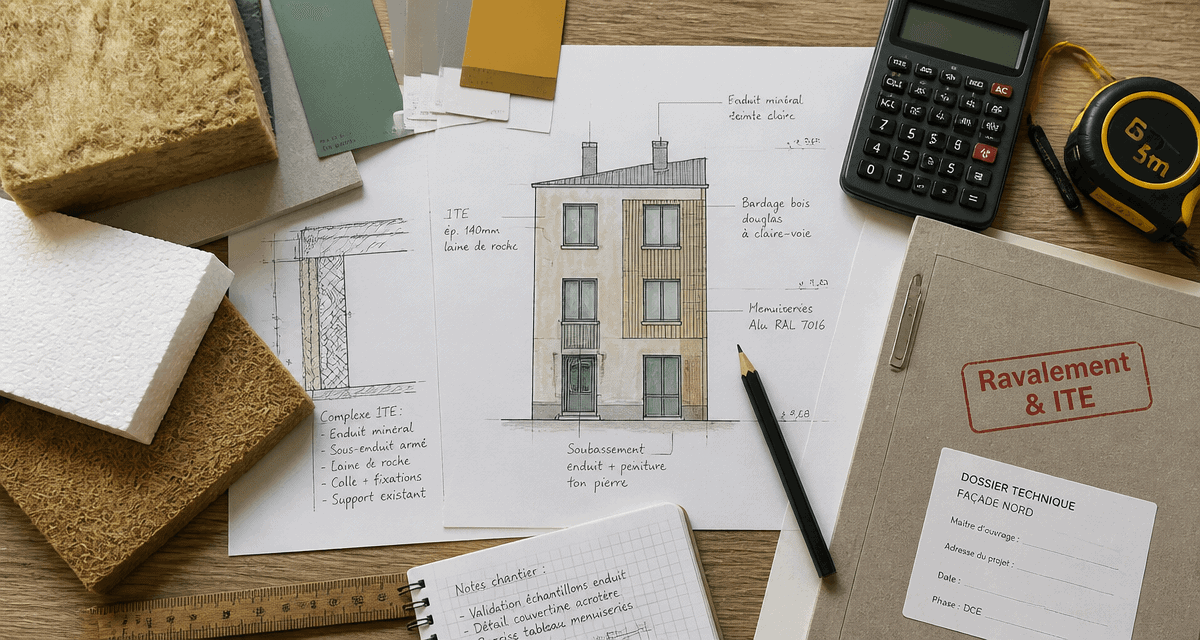 Enduit minéral
teinte claire
ITE
ép. 140mm
laine de roche
Bardage bois
douglas
à claire-voie
Menuiseries
Alu RAL 7016
Complexe ITE :
- Enduit minéral
- Sous-enduit armé
- Laine de roche
- Colle + fixations
- Support existant
Soubassement
enduit + peinture
ton pierre
Notes chantier :
- Validation échantillons enduit
- Détail couvertine acrotère
tableau menuiseries
Ravalement
& ITE
DOSSIER TECHNIQUE
FAÇADE NORD
Maître d'ouvrage :
Adresse du projet :
Date :
Phase : DCE
AC
7
4
0
=
5m